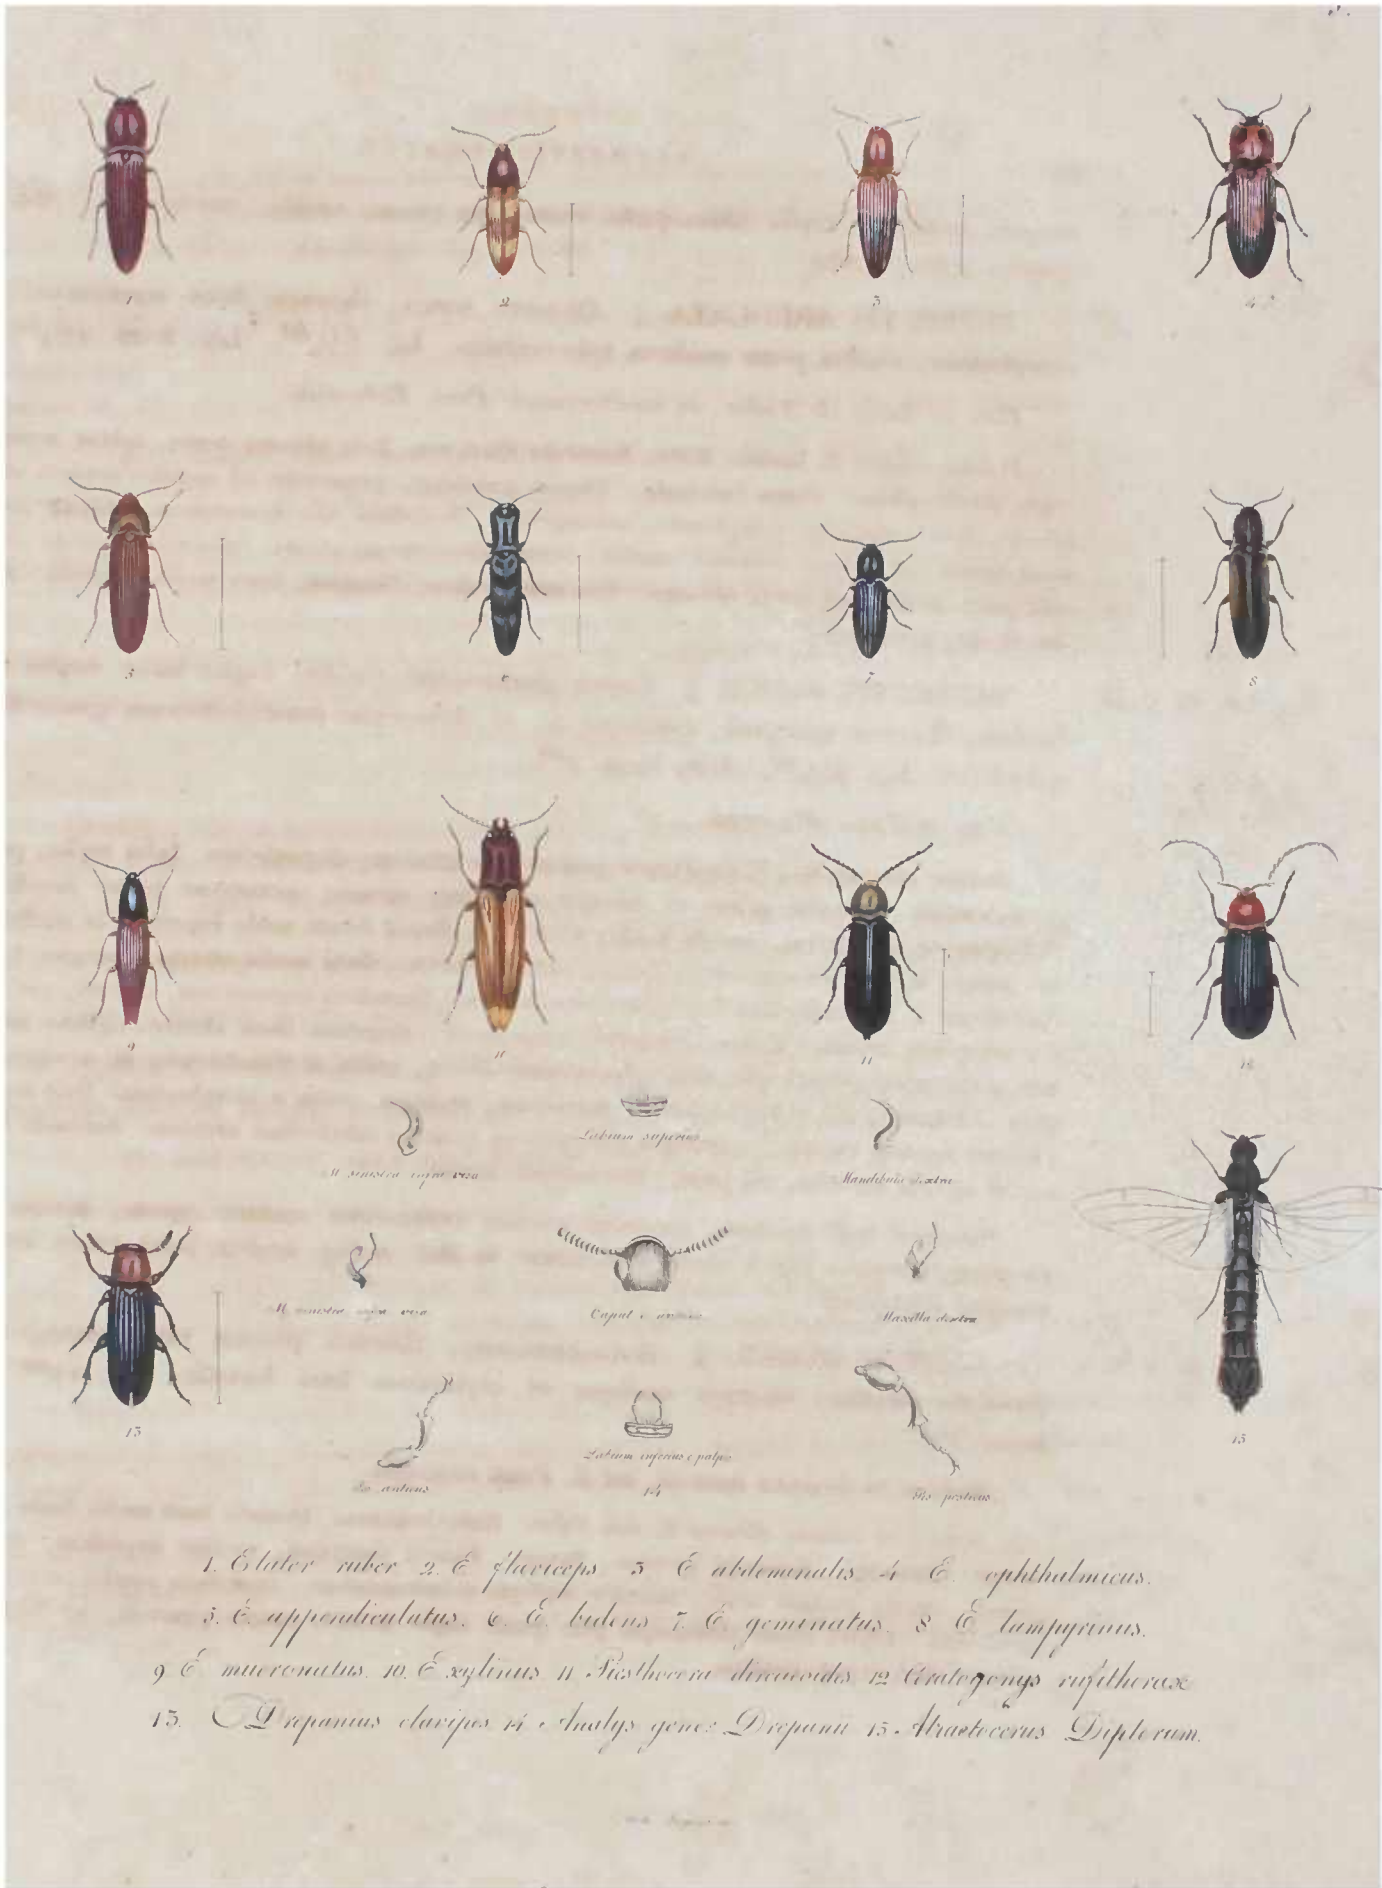 1
2
3
4
5
6
7
8
9
10
11
12
M sinistra supra visa
Labium superius
Mandibula dextra
M sinistra visa
Caput
Maxilla dextra
13
15
Labium inferius c palpis
anticus
14
Pes posticus
1. Elater ruber 2. E flaviceps 3 E abdominalis 4 E ophthalmicus.
5. E. appendiculatus. 6. E. bidens 7. E. geminatus. 8 E lampyrinus.
9 E mucronatus. 10. E xylinus 11 Piesthocera dircaeoides 12 Ceratogonys rufithorax
13. Drepanius clavipes 14 Analys gener Drepanii 15. Atractocerus Dipterum.